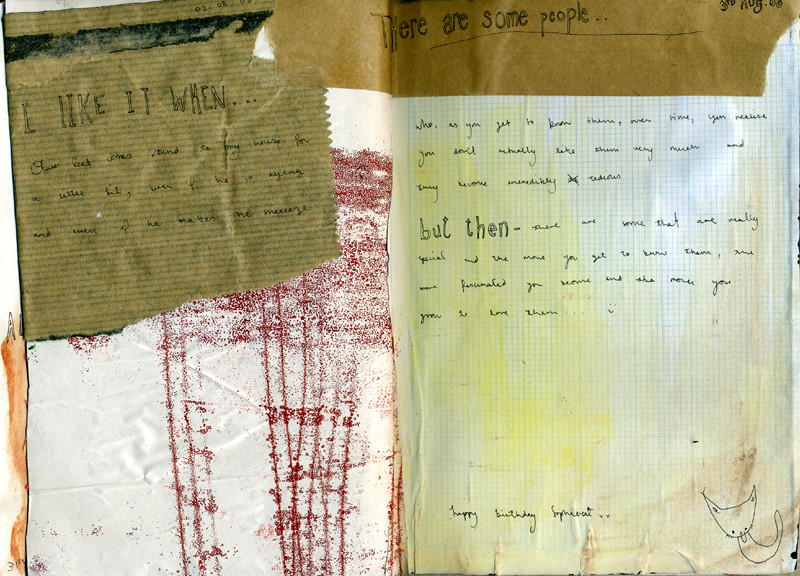 02.08.08
I LIKE IT WHEN...
comes round to my house for
a little bit, even if he is
and even if he makes me sneeze.
There are some people..
3rd Aug. 08
who, as you get to know them, over time, you realise
you don't actually like them very much and
they become incredibly tedious.
but then - there are some that are really
special and the more you get to know them, the
more fascinated you become and the more you
grow to love them....
happy birthday Sophiecat..